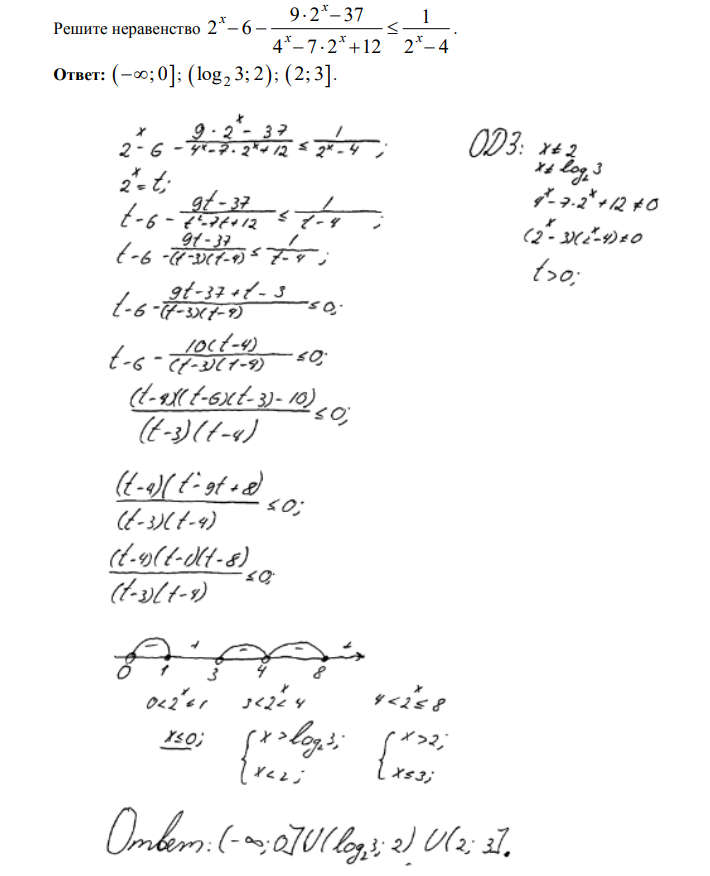 Решите неравенство 2^x − 6 − (9·2^x − 37)/(4^x − 7·2^x + 12) ≤ 1/(2^x − 4).
Ответ: (−∞; 0]; (log₂ 3; 2); (2; 3].
2^x - 6 - (9·2^x - 37)/(4^x - 7·2^x + 12) ≤ 1/(2^x - 4);
2^x = t;
t - 6 - (9t - 37)/(t² - 7t + 12) ≤ 1/(t - 4);
t - 6 - (9t - 37)/((t - 3)(t - 4)) ≤ 1/(t - 4);
t - 6 - (9t - 37 + t - 3)/((t - 3)(t - 4)) ≤ 0;
t - 6 - 10(t - 4)/((t - 3)(t - 4)) ≤ 0;
(t - 4)((t - 6)(t - 3) - 10)/((t - 3)(t - 4)) ≤ 0;
(t - 4)(t² - 9t + 8)/((t - 3)(t - 4)) ≤ 0;
(t - 4)(t - 1)(t - 8)/((t - 3)(t - 4)) ≤ 0;
ОДЗ: x ≠ 2
x ≠ log₂3
4^x - 7·2^x + 12 ≠ 0
(2^x - 3)(2^x - 4) ≠ 0
t > 0;
- + - - +
0 1 3 4 8
0 < 2^x ≤ 1 3 < 2^x < 4 4 < 2^x ≤ 8
x ≤ 0; { x > log₂3; { x > 2;
x < 2; x ≤ 3;
Ответ: (-∞; 0] U (log₂3; 2) U (2; 3].